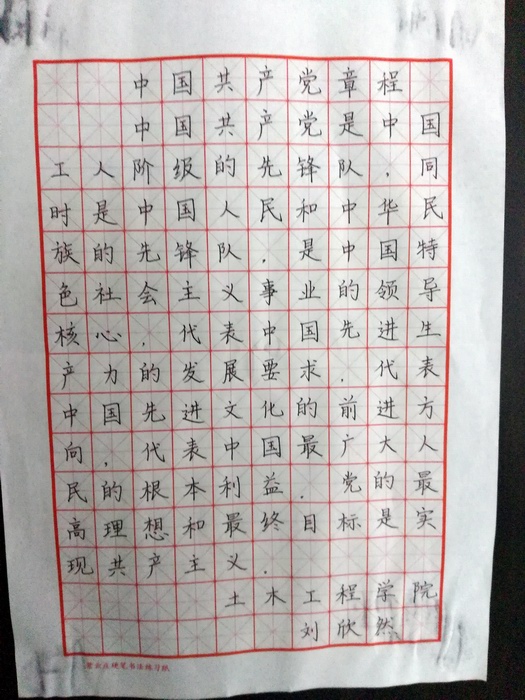 中国共产党章程
中国共产党是中国
工人阶级的先锋队，同
时是中国人民和中华民
族的先锋队，是中国特
色社会主义事业的领导
核心，代表中国先进生
产力的发展要求，代表
中国先进文化的前进方
向，代表中国最广大人
民的根本利益．党的最
高理想和最终目标是实
现共产主义．
土木工程学院
刘欣然
硬笔书法练习纸